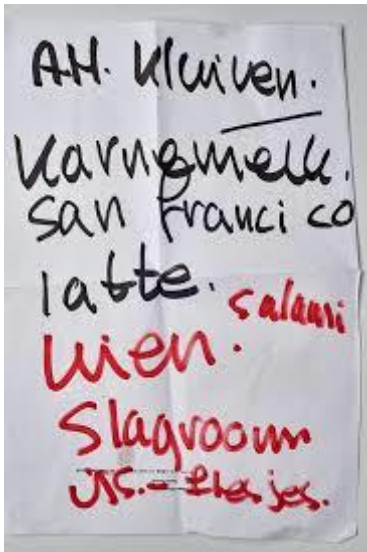 A.H. Kluiven.
Karnemelk.
San Francico
latte.
salami
uien.
Slagroom
ijs.